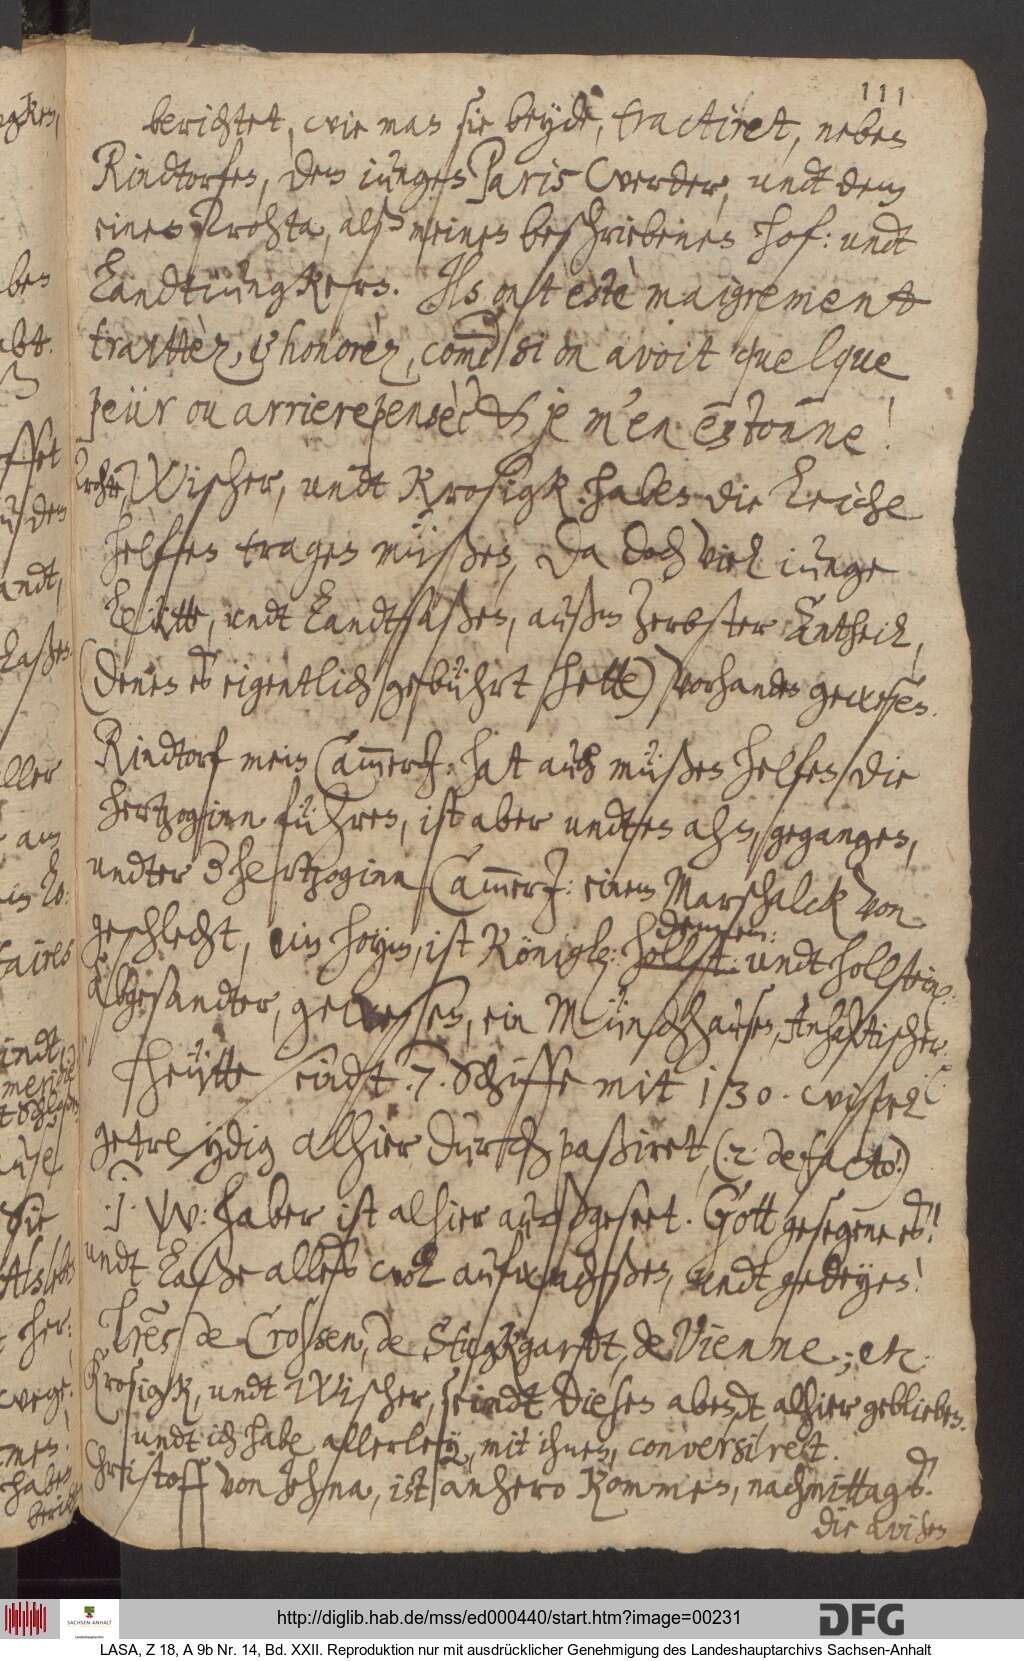 111
berichtet, wie man sie beyde, tractiret, neben
Rindtorfen, dem iungen Paris Werder, undt dem
einen Krohta, alß meinen beschriebenen Hof: undt
Landtiungkern. Ils ont estè maigrement
traittèz, & honorèz, come si on avoit quelque
peür ou arrierepensèe & je m'en estonne!
Wischer, undt Krosigk haben die Leiche
helffen tragen müßen, da doch viel iunge
Leütte, undt Landtsaßen, außm Zerbster Antheil,
(denen es eigentlich gebührt hette) vorhanden gewesen.
Rindtorf mein CammerJ: hat auch müßen helfen die
Hertzoginn führen, ist aber undten ahn, gegangen,
undter 3 Hertzoginn CammerJ: einem Marschalck von
dennen:
geschlecht, ein Hoym, ist Königl: Hollst: undt Hollstein:
Abgesandter, gewesen, ein Münchhausen, Anhaltischer.
Heütte sindt .7. Schiffe mit 130. wispel
getreydig alhier durch paßiret, (.2. de facto)
.1. W: haber ist alhier außgeseet. Gott gesegene es!
undt laße alles wol aufwachßen, undt gedeyen!
Lres de Crossen, de Stugkgardt, de Vienne; etc.
Krosigk, undt Wischer, seindt diesen abendt alhier geblieben.
undt ich habe allerley, mit ihnen, conversiret.
Christoff von Jehna, ist anhero kommen, nachmittags.
die avisen
http://diglib.hab.de/mss/ed000440/start.htm?image=00231
DFG
SACHSEN-ANHALT
LASA, Z 18, A 9b Nr. 14, Bd. XXII. Reproduktion nur mit ausdrücklicher Genehmigung des Landeshauptarchivs Sachsen-Anhalt